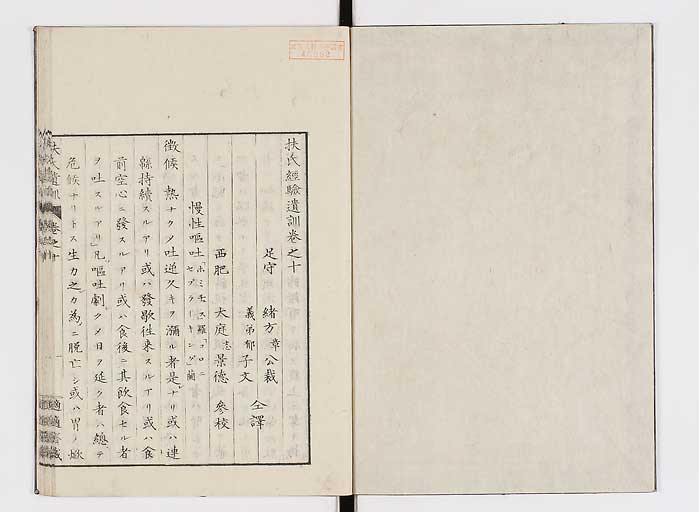 扶氏經驗遺訓卷之十
足守 緒方章公裁
義弟郁子文 仝譯
西肥 大庭忞景德 參校
慢性嘔吐「ホミチュス」羅「コロニセブラーキング」蘭
徵候 熱ナクノ吐逆久キヲ瀰ル者是ナリ或ハ連
緜持續スルアリ或ハ發歇徃来スルアリ或ハ食
前空心ニ發スルアリ或ハ食後ニ其飲食セル者
ヲ吐スルアリ」凡嘔吐劇クノ日ヲ延ク者ハ總テ
危候ナリトス生力之カ為ニ脱亡シ或ハ胃ノ焮
卷之十